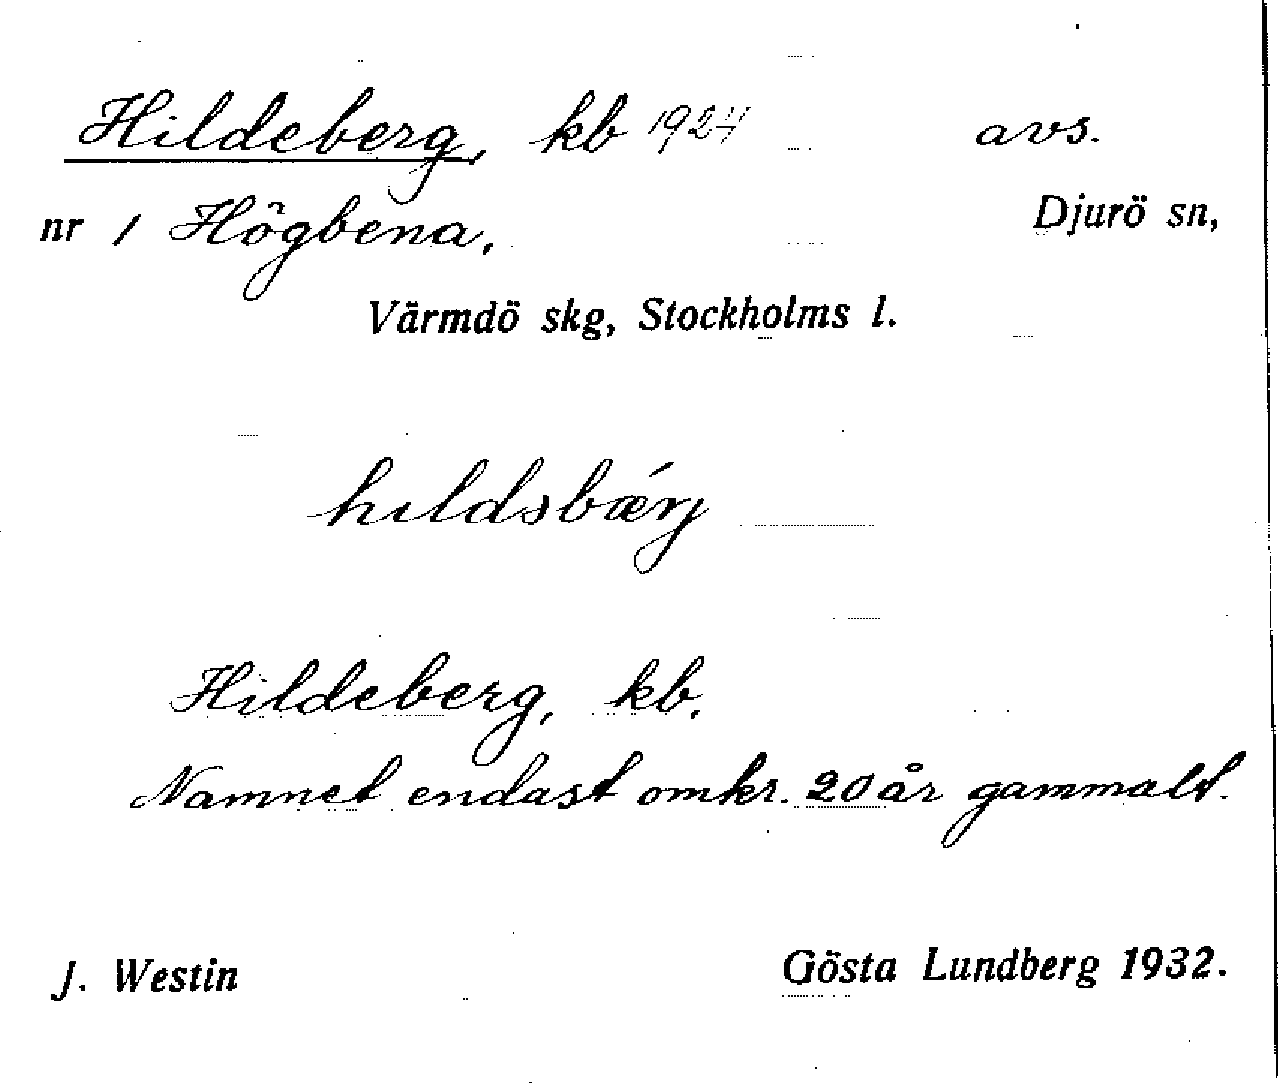 Hildeberg, kb 1924 avs.
nr 1 Högbena, Djurö sn,
Värmdö skg, Stockholms l.
hıldsbǽrj
Hildeberg, kb.
Namnet endast omkr. 20 år gammalt.
J. Westin Gösta Lundberg 1932.